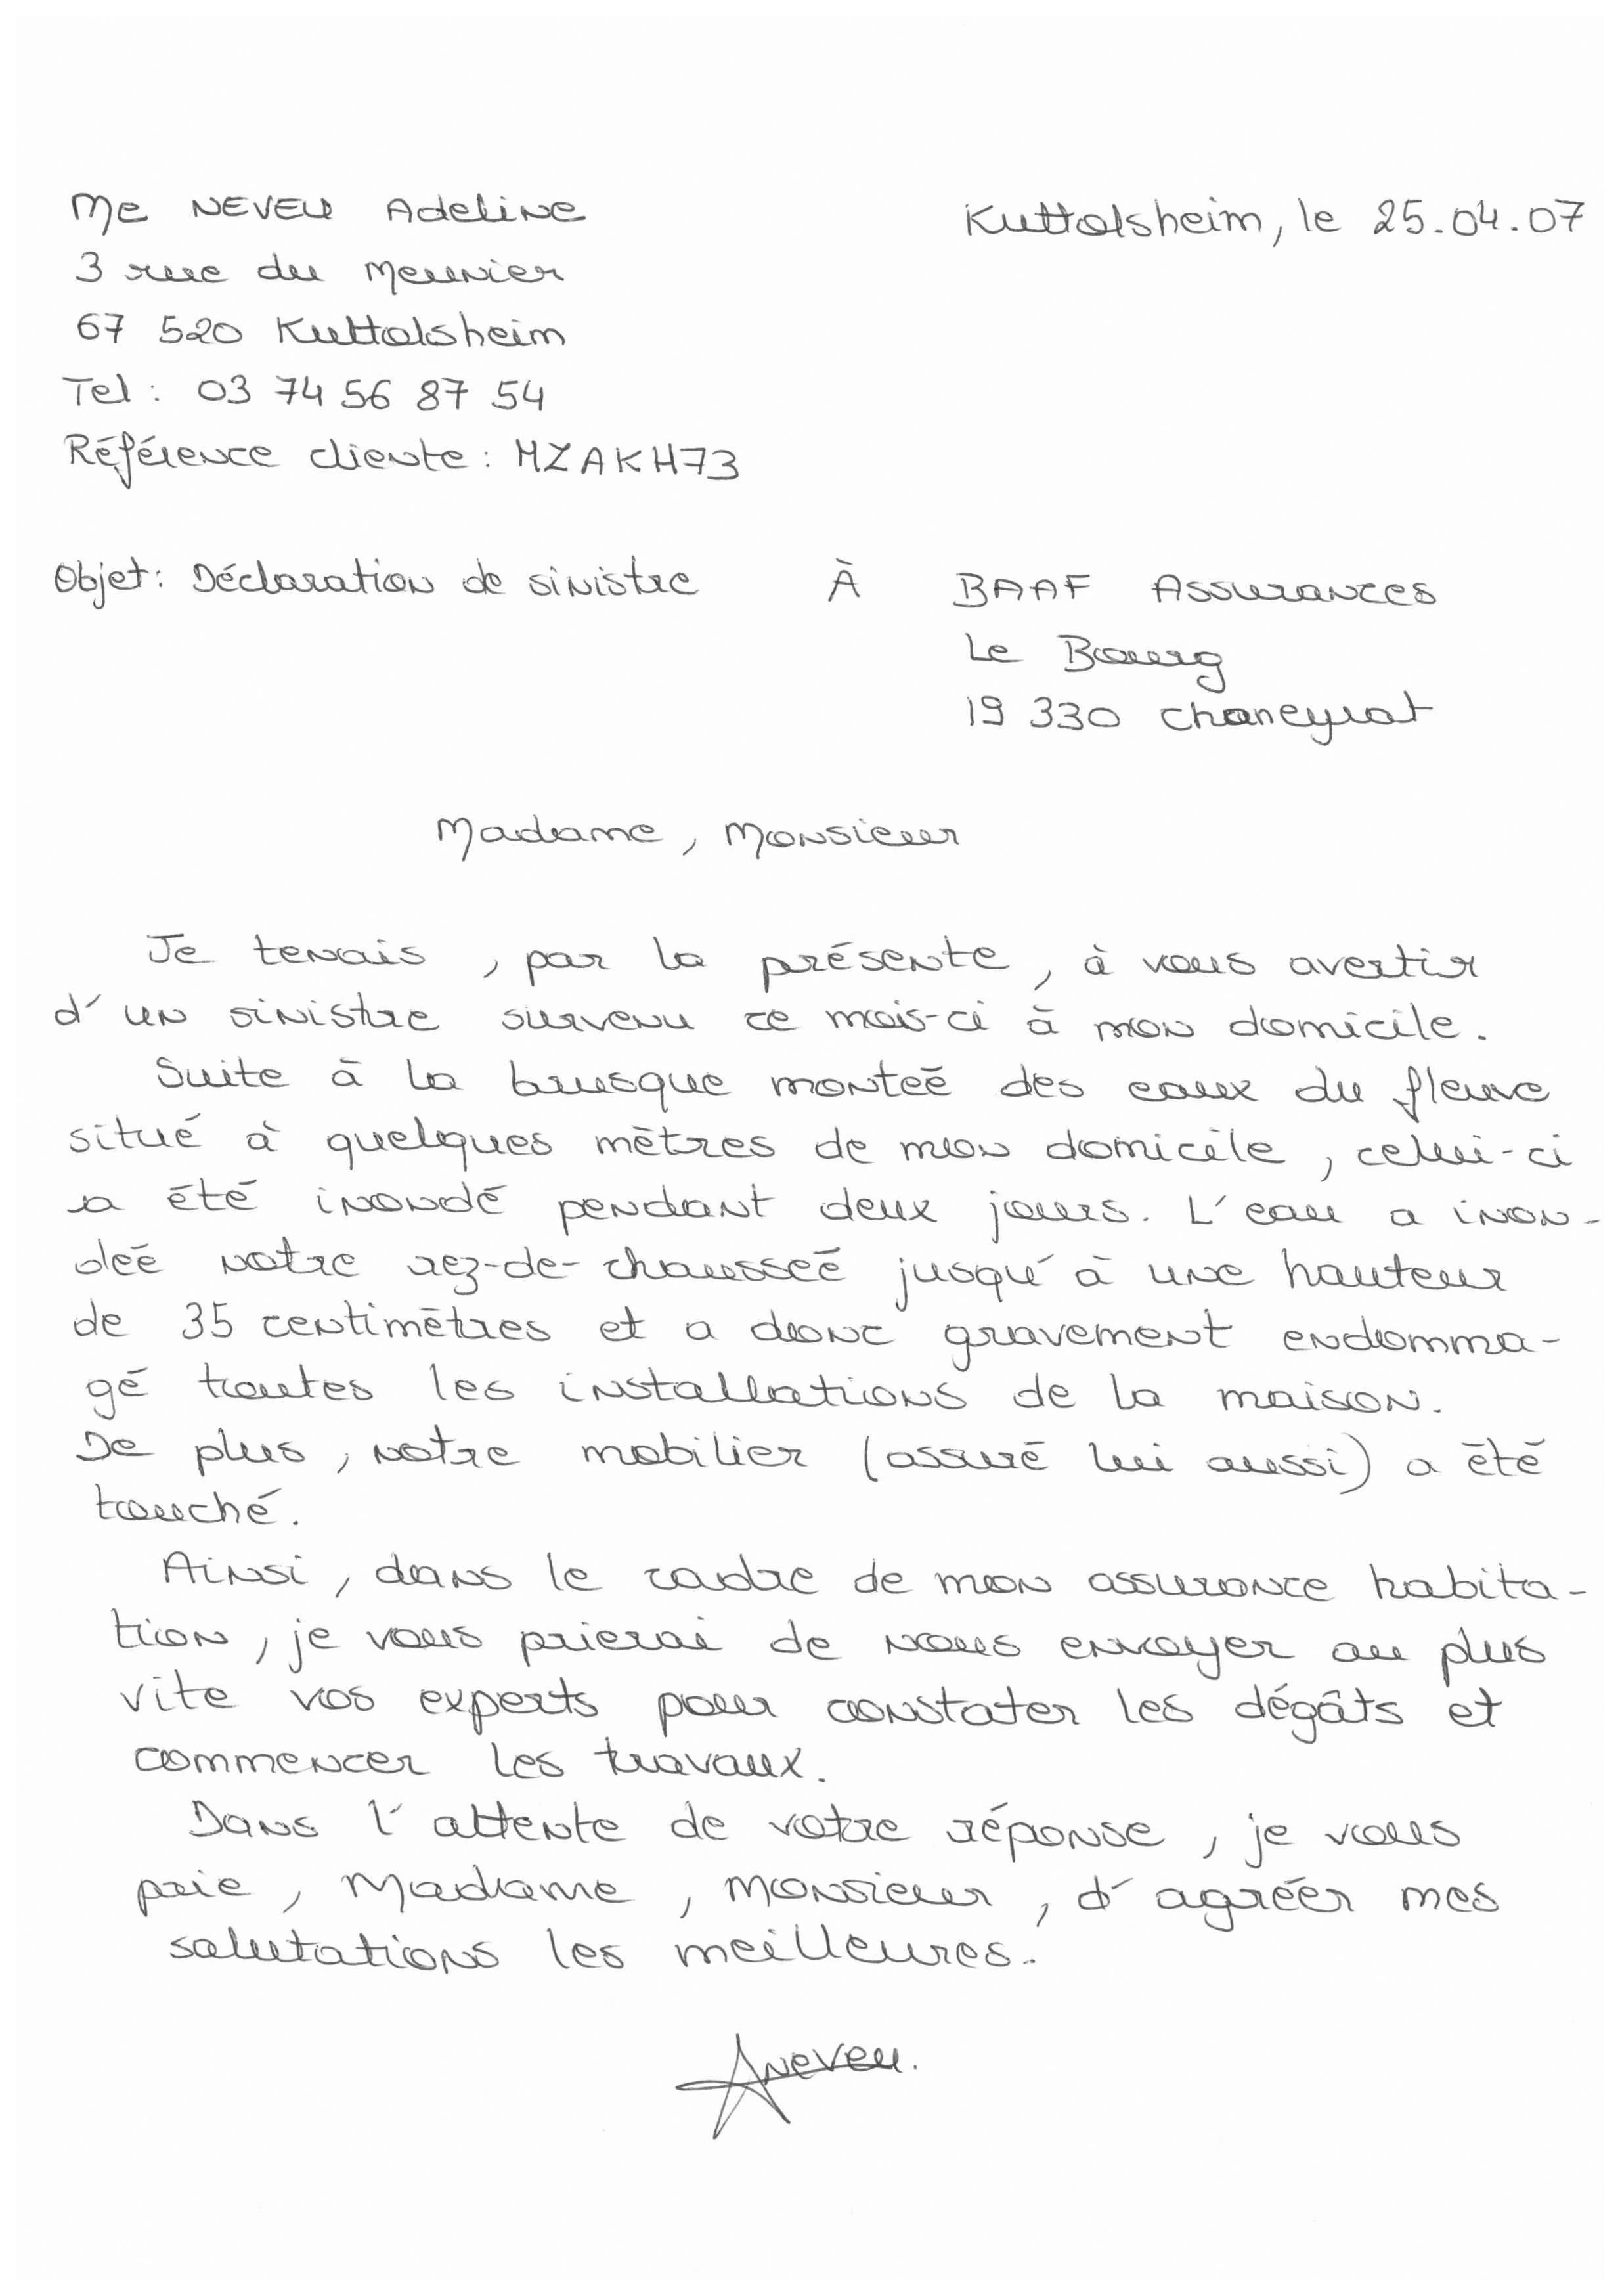 Me NEVEU Adeline
Kuttolsheim, le 25.04.07
3 rue du Meunier
67 520 Kuttolsheim
Tel : 03 74 56 87 54
Référence cliente : MZAKH73
Objet : Déclaration de sinistre
À BAAF Assurances
Le Bourg
19 330 chaneyrat
Madame, Monsieur
Je tenais, par la présente, à vous avertir
d'un sinistre survenu ce mois-ci à mon domicile.
Suite à la brusque monteé des eaux du fleuve
situé à quelques mètres de mon domicile, celui-ci
a été inondé pendant deux jours. L'eau a inon-
deé notre rez-de-chausseé jusqu'à une hauteur
de 35 centimètres et a donc gravement endomma-
gé toutes les installations de la maison.
De plus, notre mobilier (assuré lui aussi) a été
touché.
Ainsi, dans le cadre de mon assurance habita-
tion, je vous prierai de nous envoyer au plus
vite vos experts pour constater les dégâts et
commencer les travaux.
Dans l'attente de votre réponse, je vous
prie, Madame, Monsieur, d'agréér mes
salutations les meilleures.
ANeveu.